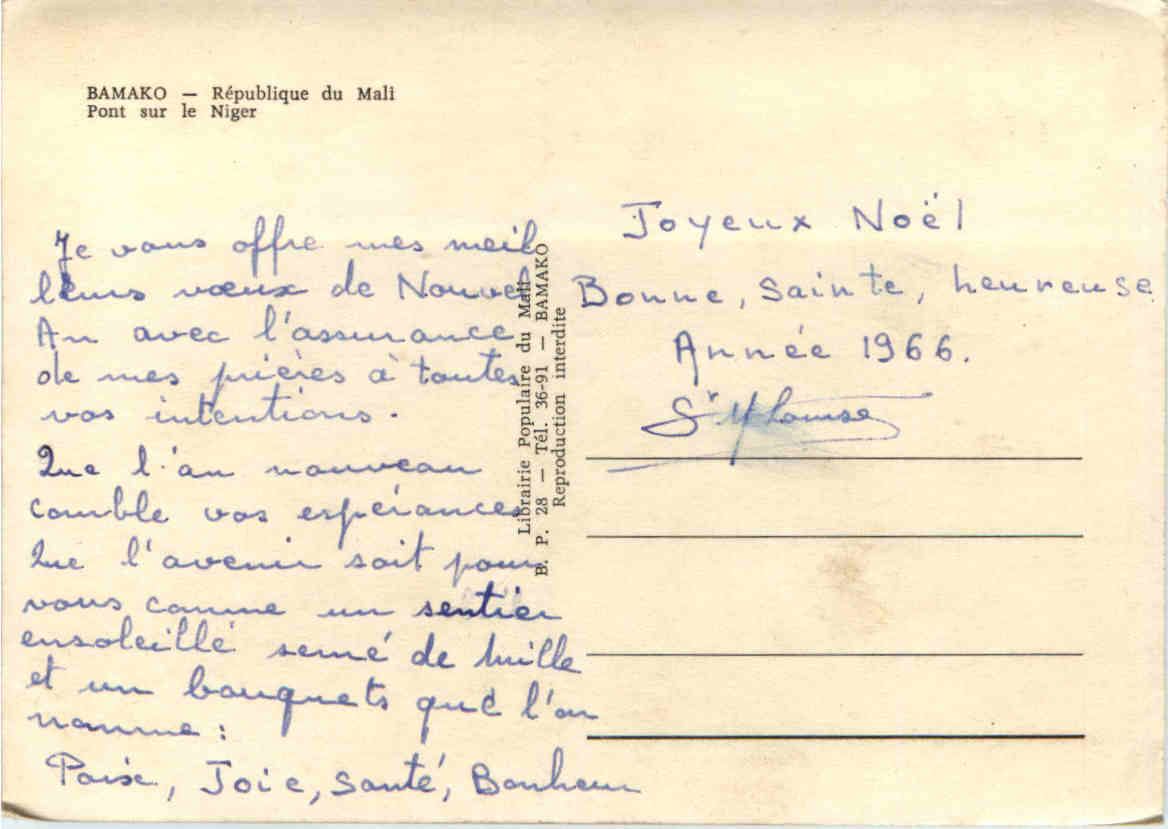 BAMAKO — République du Mali
Pont sur le Niger
Je vous offre mes meil
leurs vœux de Nouvel
An avec l'assurance
de mes prières à toutes
vos intentions.
Que l'an nouveau
comble vos espérances
Que l'avenir soit pour
vous comme un sentier
ensoleillé semé de mille
et un bouquets que l'on
nomme :
Paix, Joie, Santé, Bonheur
Librairie Populaire du Mali
B. P. 28 — Tél. 36-91 — BAMAKO
Reproduction interdite
Joyeux Noël
Bonne, Sainte, heureuse
Année 1966.
Sr M Louise